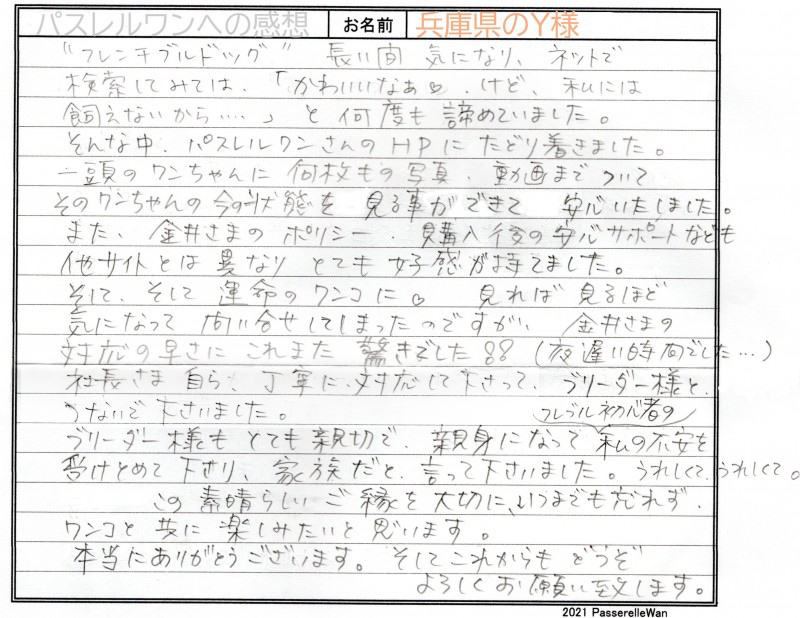 パスレルワンへの感想 お名前 兵庫県のY様
"フレンチブルドッグ" 長い間 気になり、ネットで
検索してみては、「かわいいなぁ♡、けど、私には
飼えないから‥‥」と 何度も 諦めていました。
そんな中、パスレルワンさんのHPに たどり着きました。
一頭のワンちゃんに 何枚もの写真、動画まで ついて
そのワンちゃんの今の状態を 見る事ができて 安心いたしました。
また、金井さまの ポリシー、購入後の安心サポートなども
他サイトとは 異なり とても 好感が持てました。
そして、そして 運命のワンコに♡ 見れば 見るほど
気になって 問い合せしてしまったのですが、金井さまの
対応の早さに これまた 驚きでした!! (夜遅い時間でした…)
社長さま 自ら、丁寧に 対応して下さって、ブリーダー様と、
つないで下さいました。 フレブル初心者の
ブリーダー様も とても 親切で、親身になって 私の不安を
受けとめて 下さり、家族だと、言って下さいました。うれしくて、うれしくて。
この 素晴らしい ご縁を 大切に、いつまでも 忘れず、
ワンコと 共に 楽しみたいと 思います。
本当にありがとうございます。そしてこれからも どうぞ
よろしく お願い致します。
2021 PasserelleWan